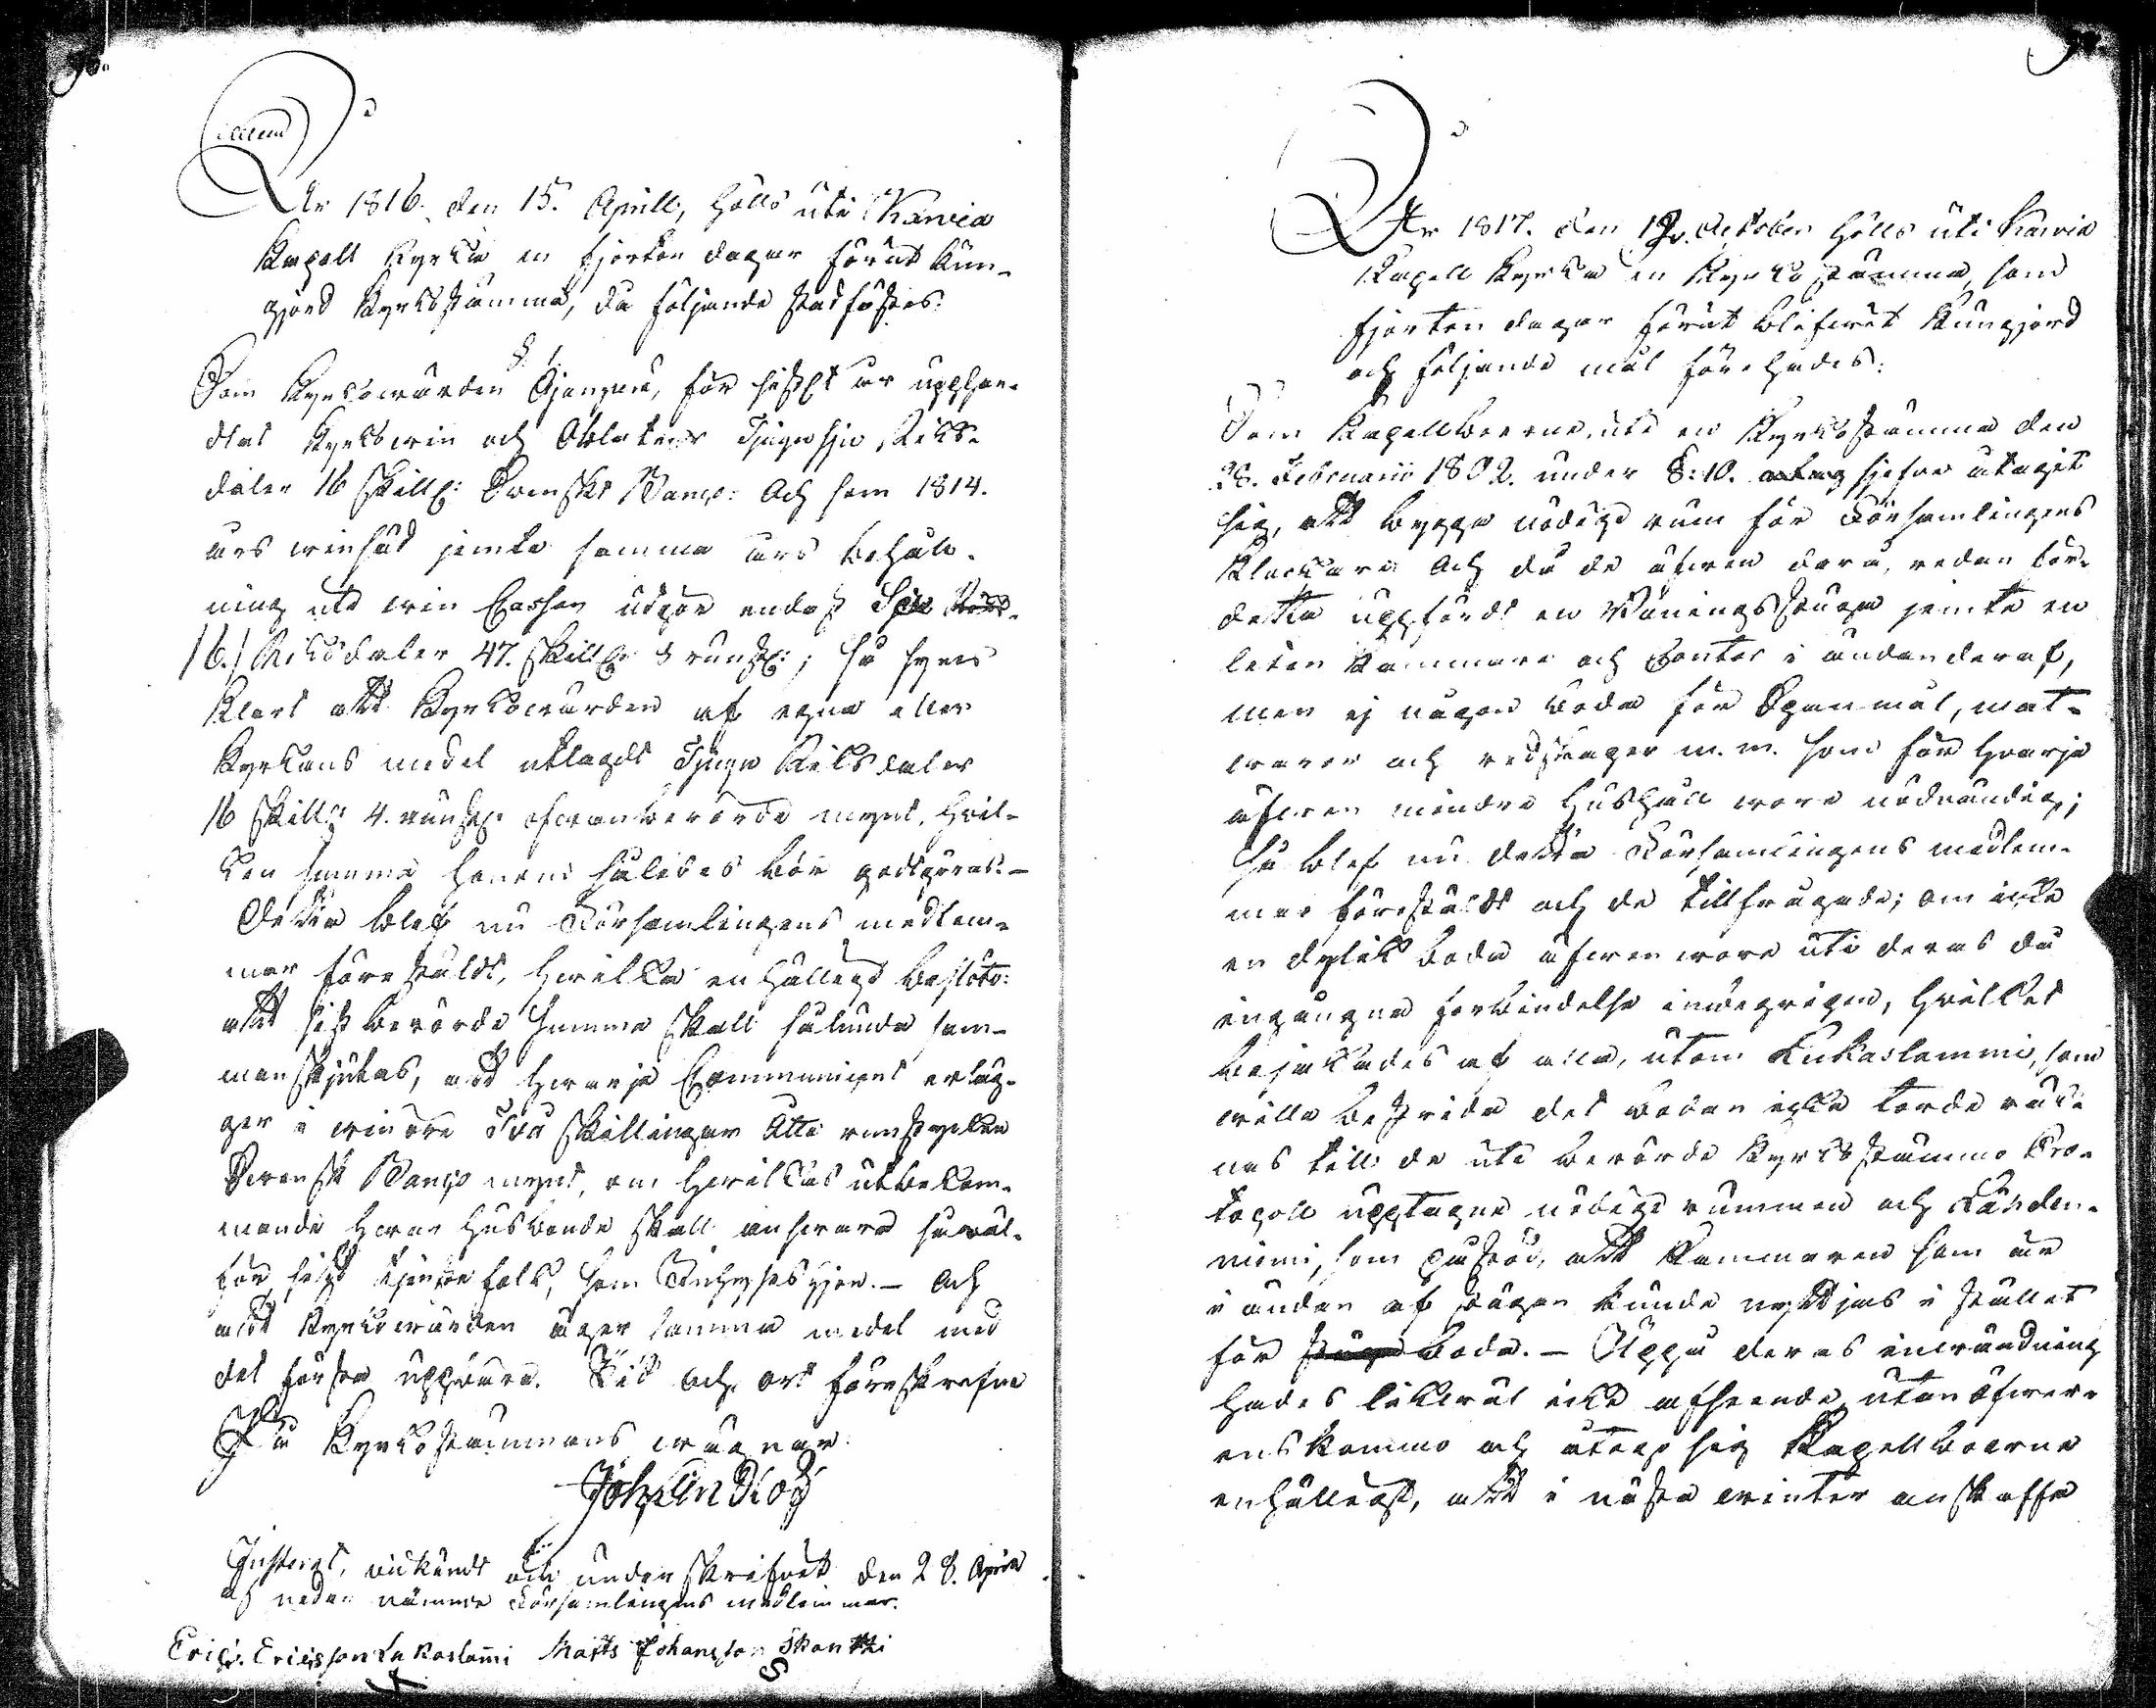 År 1816. den 15. Aprill, hölls uti Karvia
Kapell Kyrka en fjorton dagar förut kun-
gjord Kyrkostämma, då följande stadfästes:
§ 1.
Som Kyrkowärden för sistl. år upphan-
dlat Kyrkowin och Oblater Tjugusju Riks-
daler 16 skillg: Svenskt Banco: Och som 1814.
års winhåt jemte samma års behåll-
ning uti win Cassan utgör endast
/6./ Riksdaler 47. skillg: 8 runst:; så synes
klart att Kyrkowärden af egna eller
Kyrkans medel utlagdt Tjugu Riksdaler
16 skillg: 4. runst: ofwanberörde mynt, hvil-
ken summa honom således bör godtgöras. –
Detta blef nu Församlingens medlem-
mar föreståldt, hwilka enhälligt beslöto:
att sist berörde summa skall sålunda sam-
manskjutas, att hwarje Communicant erläg-
ger i winöre Två skillingar Åtta runstycken
Svenskt Banco mynt, om hwilkas utbekom-
mande hwar Husbonde skall answara såväl
för sitt tjenstefolk, som Inhyses hjon. – Och
att Kyrkowärden äger samma medel med
det första uppbära. Tid och ort föreskrefne
På Kyrkostämmans wägnar:
Joh: Lindröö
Justerat, widkändt och underskrifwit den 28. Aprill
af nedan nämnde Församlingens medlemmar.
Eric Ericsson Lukaslammi Matts Johansson Skantzi
År 1817. den 12. October hölls uti Karvia
Kapell Kyrka en Kyrkostämma, som
fjorton dagar förut blifwit kungjord
och följande mål förehades:
Som Kapellboerne, uti en Kyrkostämma den
28. Februarii 1802. under §: 10. sjelfve åtagit
sig, att bygga nödige rum för Församlingens
Klockare Och då de äfwen dera, redan för-
detta uppfördt en Våningsstuga jemte en
liten Kammare och Contor i ändan deraf,
men ej någon boda för Spanmål, mat-
waror och redskaper m. m. som för hwarje
äfwen mindre Hushåll wore nödwändig;
så blef nu detta Församlingens medlem-
mar föreståldt och de tillfrågade; om icke
en dylik boda äfwen wore uti deras då
ingångna förbindelse inbegripen, hvilket
bejakades af alla, utom Lukaslammi, som
wille bestrida det bodan icke torde räk-
nas till de uti berörde Kyrkostämmo Pro-
tocoll upptagne nödige rummen och
niemi, som påstod, att Kammaren som är
i ändan af stugan kunde nyttjas i stället
för boda. – Uppå deras inwändning
hades likwäl icke afseende, utan öfwer-
enskommo och åtogo sig Kapellboerne
enhälligt, att i nästa winter anskaffa